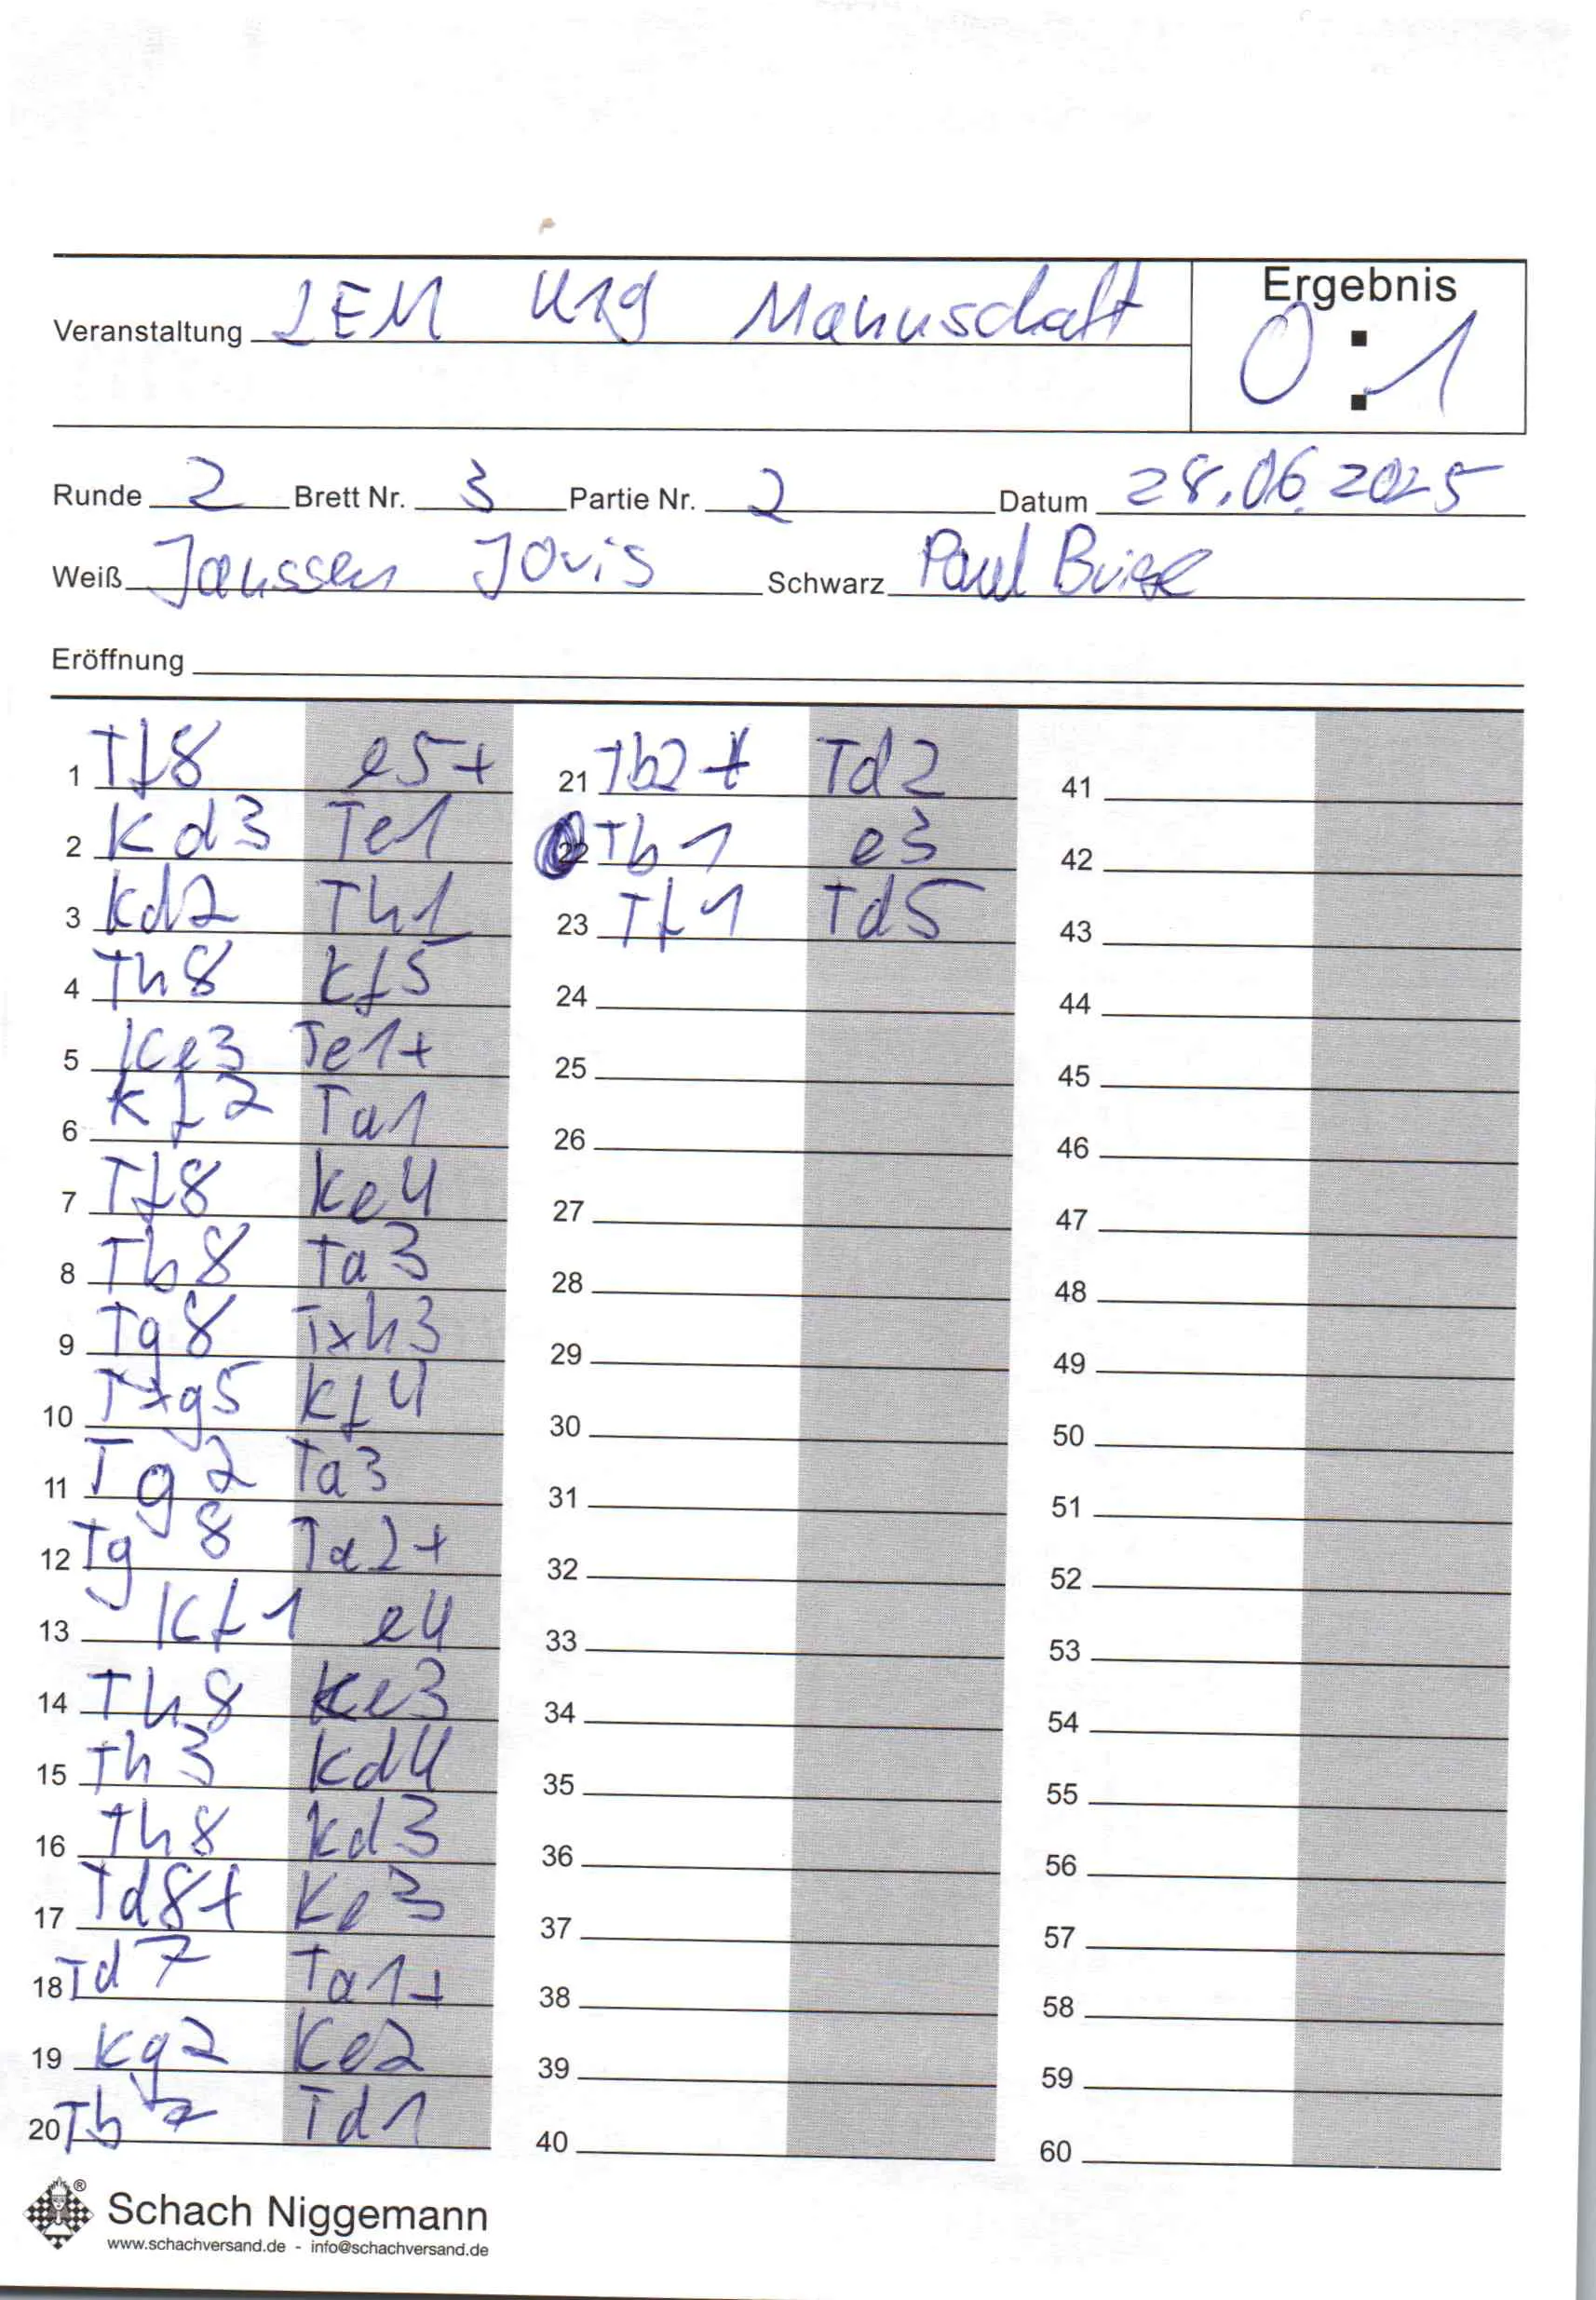 Ergebnis
Veranstaltung LEM U19 Mannschaft
0:1
Runde 2 Brett Nr. 3 Partie Nr. 2 Datum 28.06.2025
Weiß Janssen Joris Schwarz Paul
Eröffnung
1 Tf8 e5+
2 Kd3 Te1
3 Kd2 Th1
4 Th8 Kf5
5 Ke3 Te1+
6 Kf2 Ta1
7 Tf8 Ke4
8 Tb8 Ta3
9 Tg8 Txh3
10 Txg5 Kf4
11 Tg2 Ta3
12 Tg8 Ta2+
13 Kf1 e4
14 Th8 Ke3
15 Th3 Kd4
16 Th8 Kd3
17 Td8+ Ke3
18 Td7 Ta1+
19 Kg2 Ke2
20 Tb7 Td1
21 Tb2+ Td2
22 Tb1 e3
23 Tf1 Td5
24
25
26
27
28
29
30
31
32
33
34
35
36
37
38
39
40
41
42
43
44
45
46
47
48
49
50
51
52
53
54
55
56
57
58
59
60
® Schach Niggemann
www.schachversand.de - info@schachversand.de